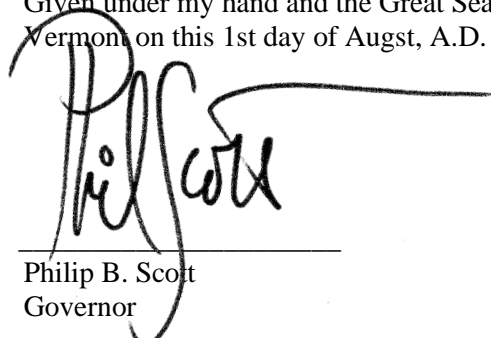 Given under my hand and the Great Sea
Vermont on this 1st day of Augst, A.D.
Phil Scott
Philip B. Scott
Governor